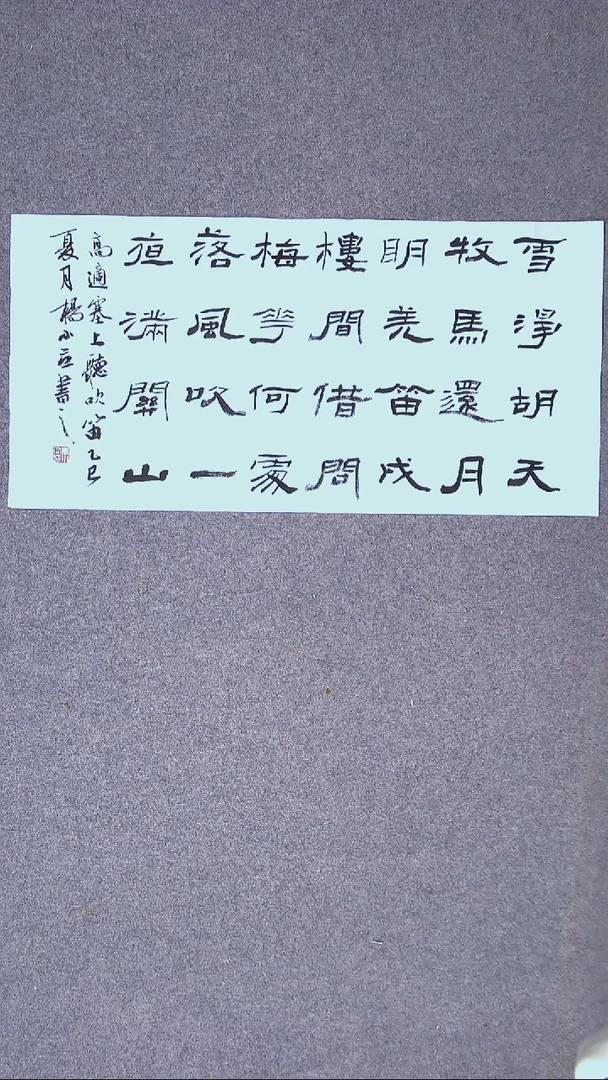 雪淨胡天
牧馬還月
明羌笛戍
樓間借問
梅花何處
落風吹一
夜滿關山
高適塞上聽吹笛乙巳
夏月楊小書之